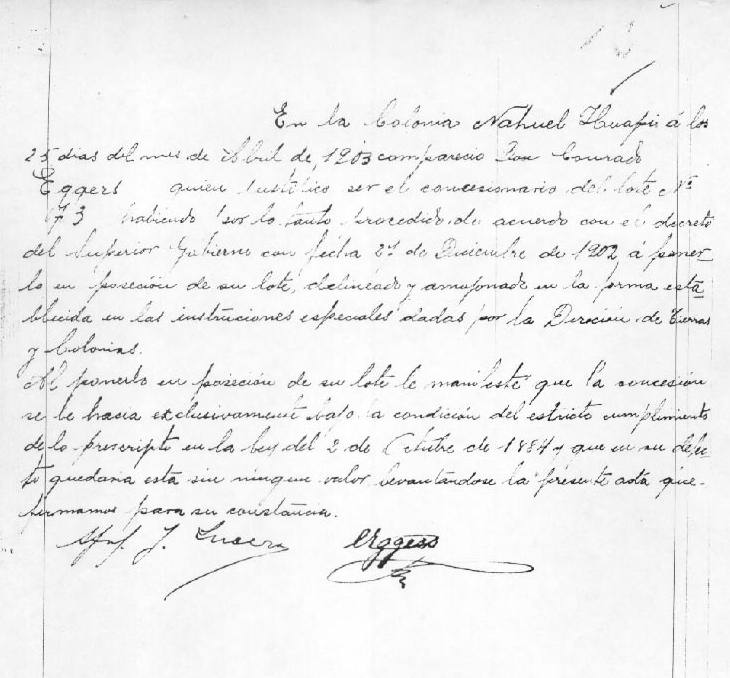 En la Colonia Nahuel Huapí á los
25 dias del mes de Abril de 1903 comparecio Don Conrado
Eggers quien justifico ser el concesionario del lote No
73 habiendo por lo tanto procedido de acuerdo con el decreto
del Superior Gobierno con fecha de Diciembre de 1902, á poner-
lo en poseción de su lote, delineado y amojonado en la forma esta-
blecida en las instruciones especiales dadas por la Direción de Tierras
y Colonias.
Al ponerlo en poseción de su lote le manifesté que la concesión
se le hacia exclusivamente bajo la condición del estricto cumplimiento
de lo prescripto en la ley del 2 de Octubre de 1884 y que en su defec-
to quedaria esta sin ningun valor levantandose la presente acta que
firmamos para su constancia.
J. Lucero Eggers